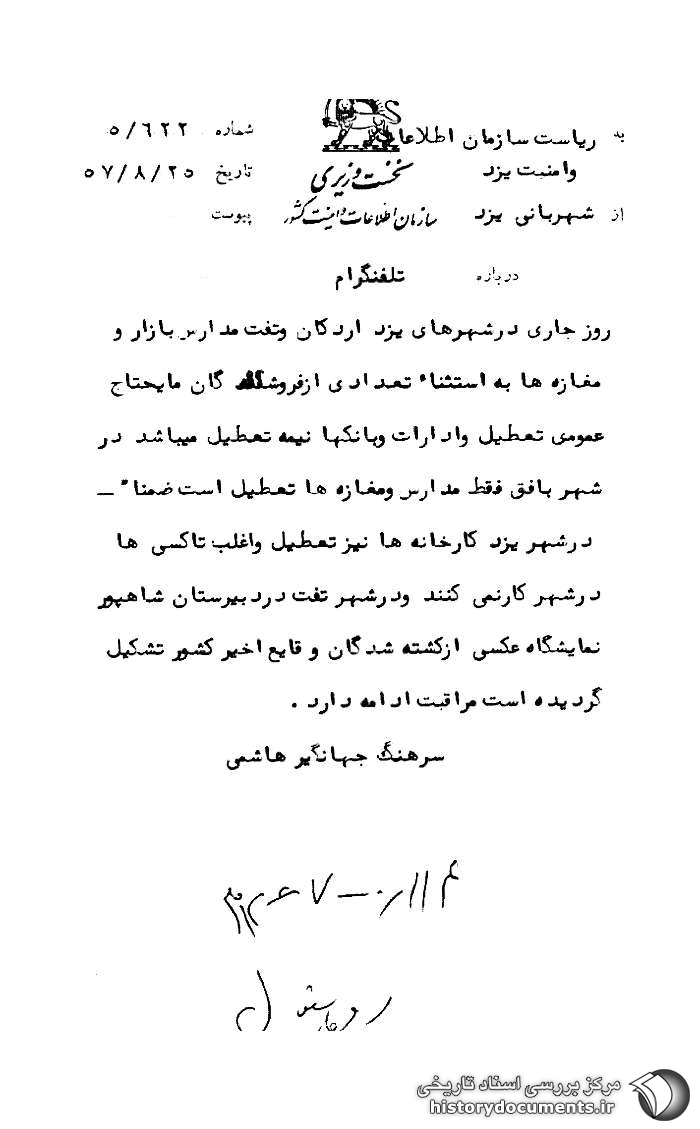 به ریاست سازمان اطلاعات شماره ۵/۶۲۲
وامنیت یزد نخست وزیری تاریخ ۵۷/۸/۲۵
از شهربانی یزد سازمان اطلاعات و امنیت کشور پیوست
درباره تلفنگرام
روز جاری درشهرهای یزد اردکان وتفت مدارس بازار و
مغازه ها به استثناء تعدادی ازفروشنده گان مایحتاج
عمومی تعطیل وادارات وبانکها نیمه تعطیل میباشد در
شهر بافق فقط مدارس ومغازه ها تعطیل است ضمنا" ـ
درشهر یزد کارخانه ها نیز تعطیل واغلب تاکسی ها
درشهر کارنمی کنند ودرشهر تفت دردبیرستان شاهپور
نمایشگاه عکسی ازکشته شدگان و قایع اخیر کشور تشکیل
گردیده است مراقبت ادامه دارد .
سرهنگ جهانگیر هاشمی
مرکز بررسی اسناد تاریخی
historydocuments.ir